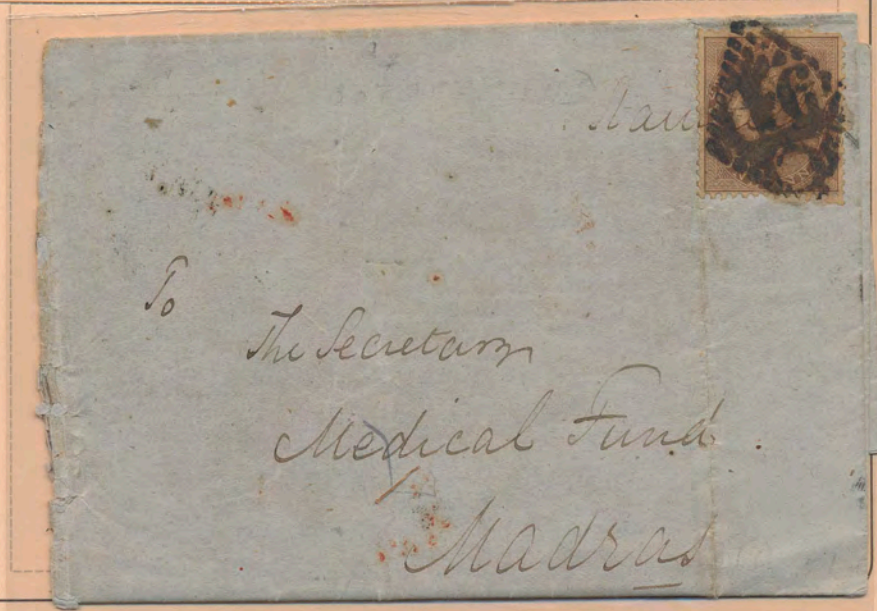 To
The Secretary
Medical Fund
Madras